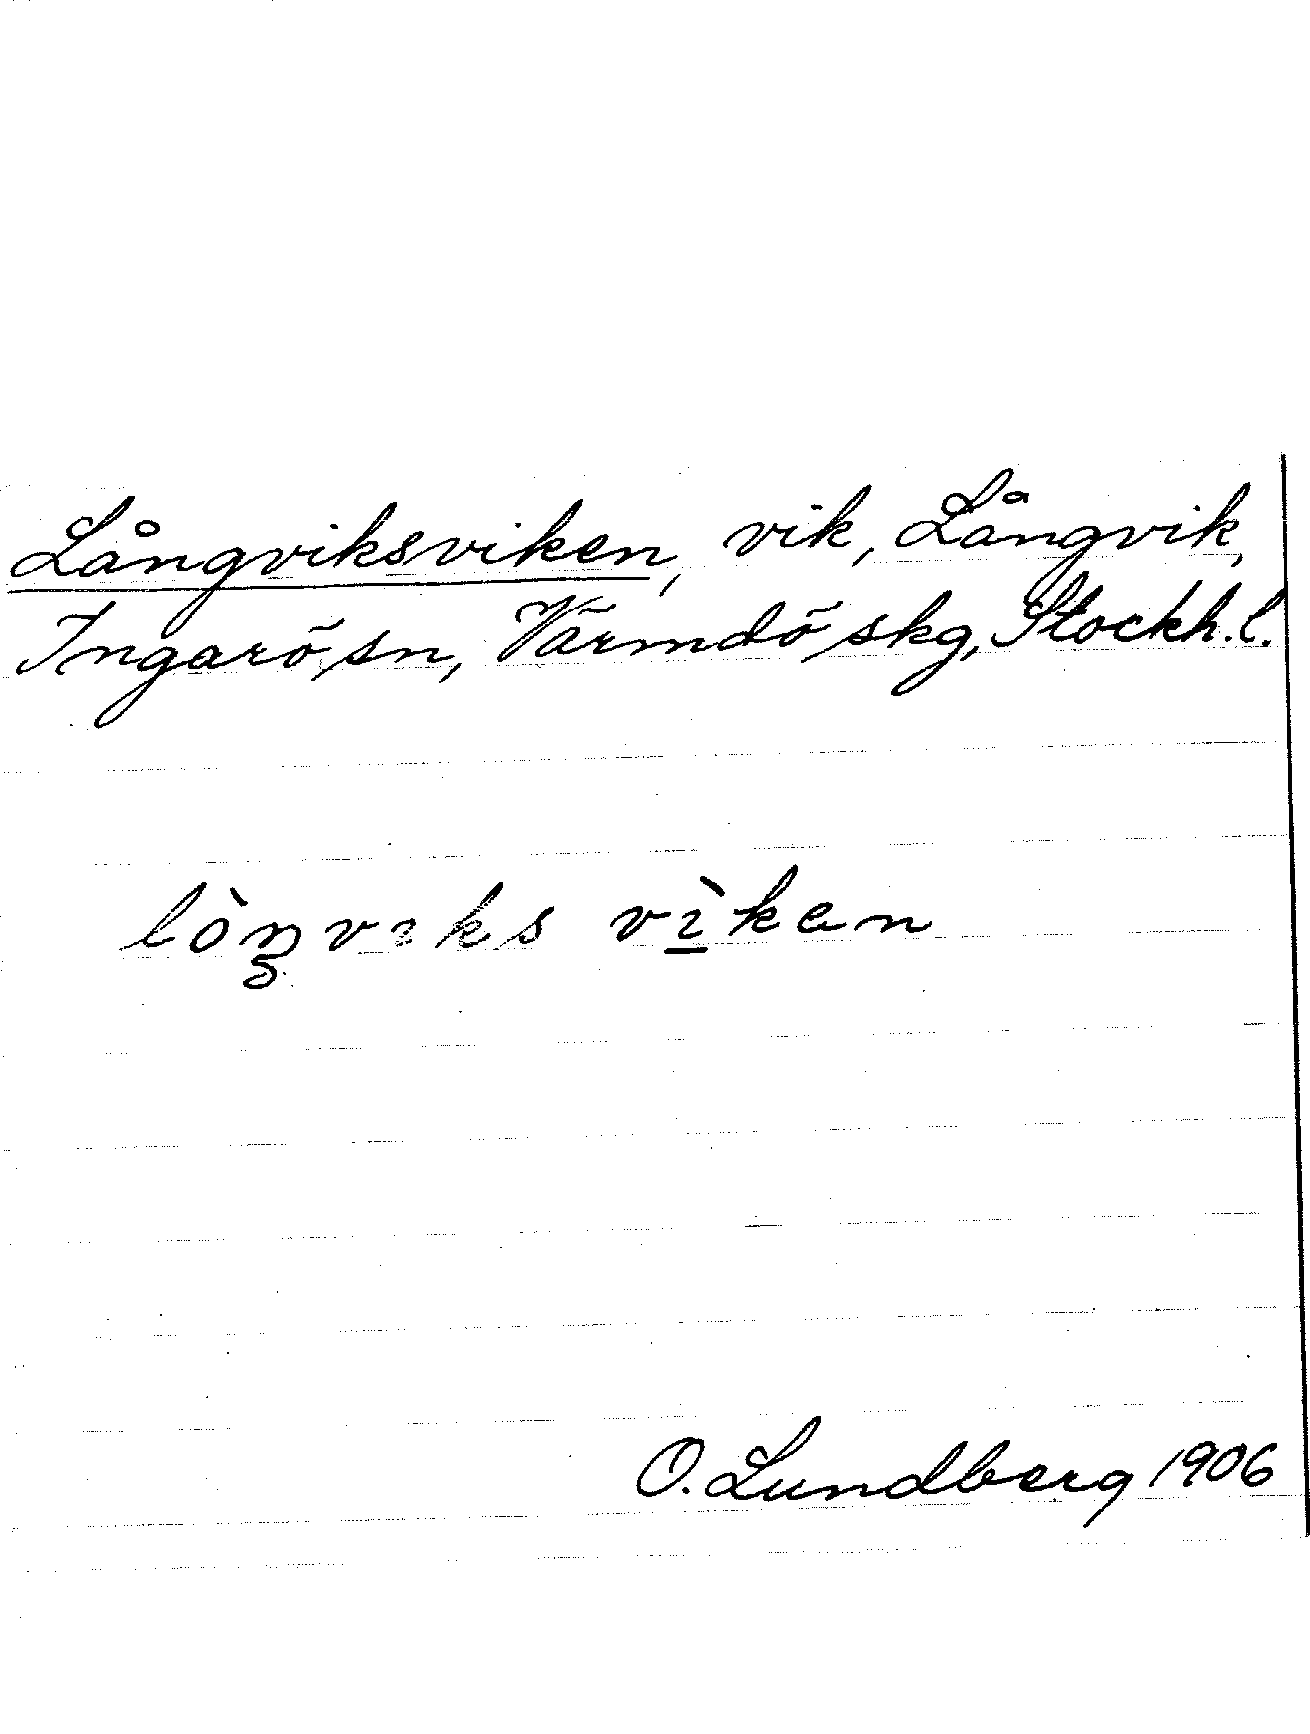 Långviksviken, vik, Långvik,
Ingarö sn, Värmdö skg, Stockh. l.
lòŋviks vì̱ken
O. Lundberg 1906